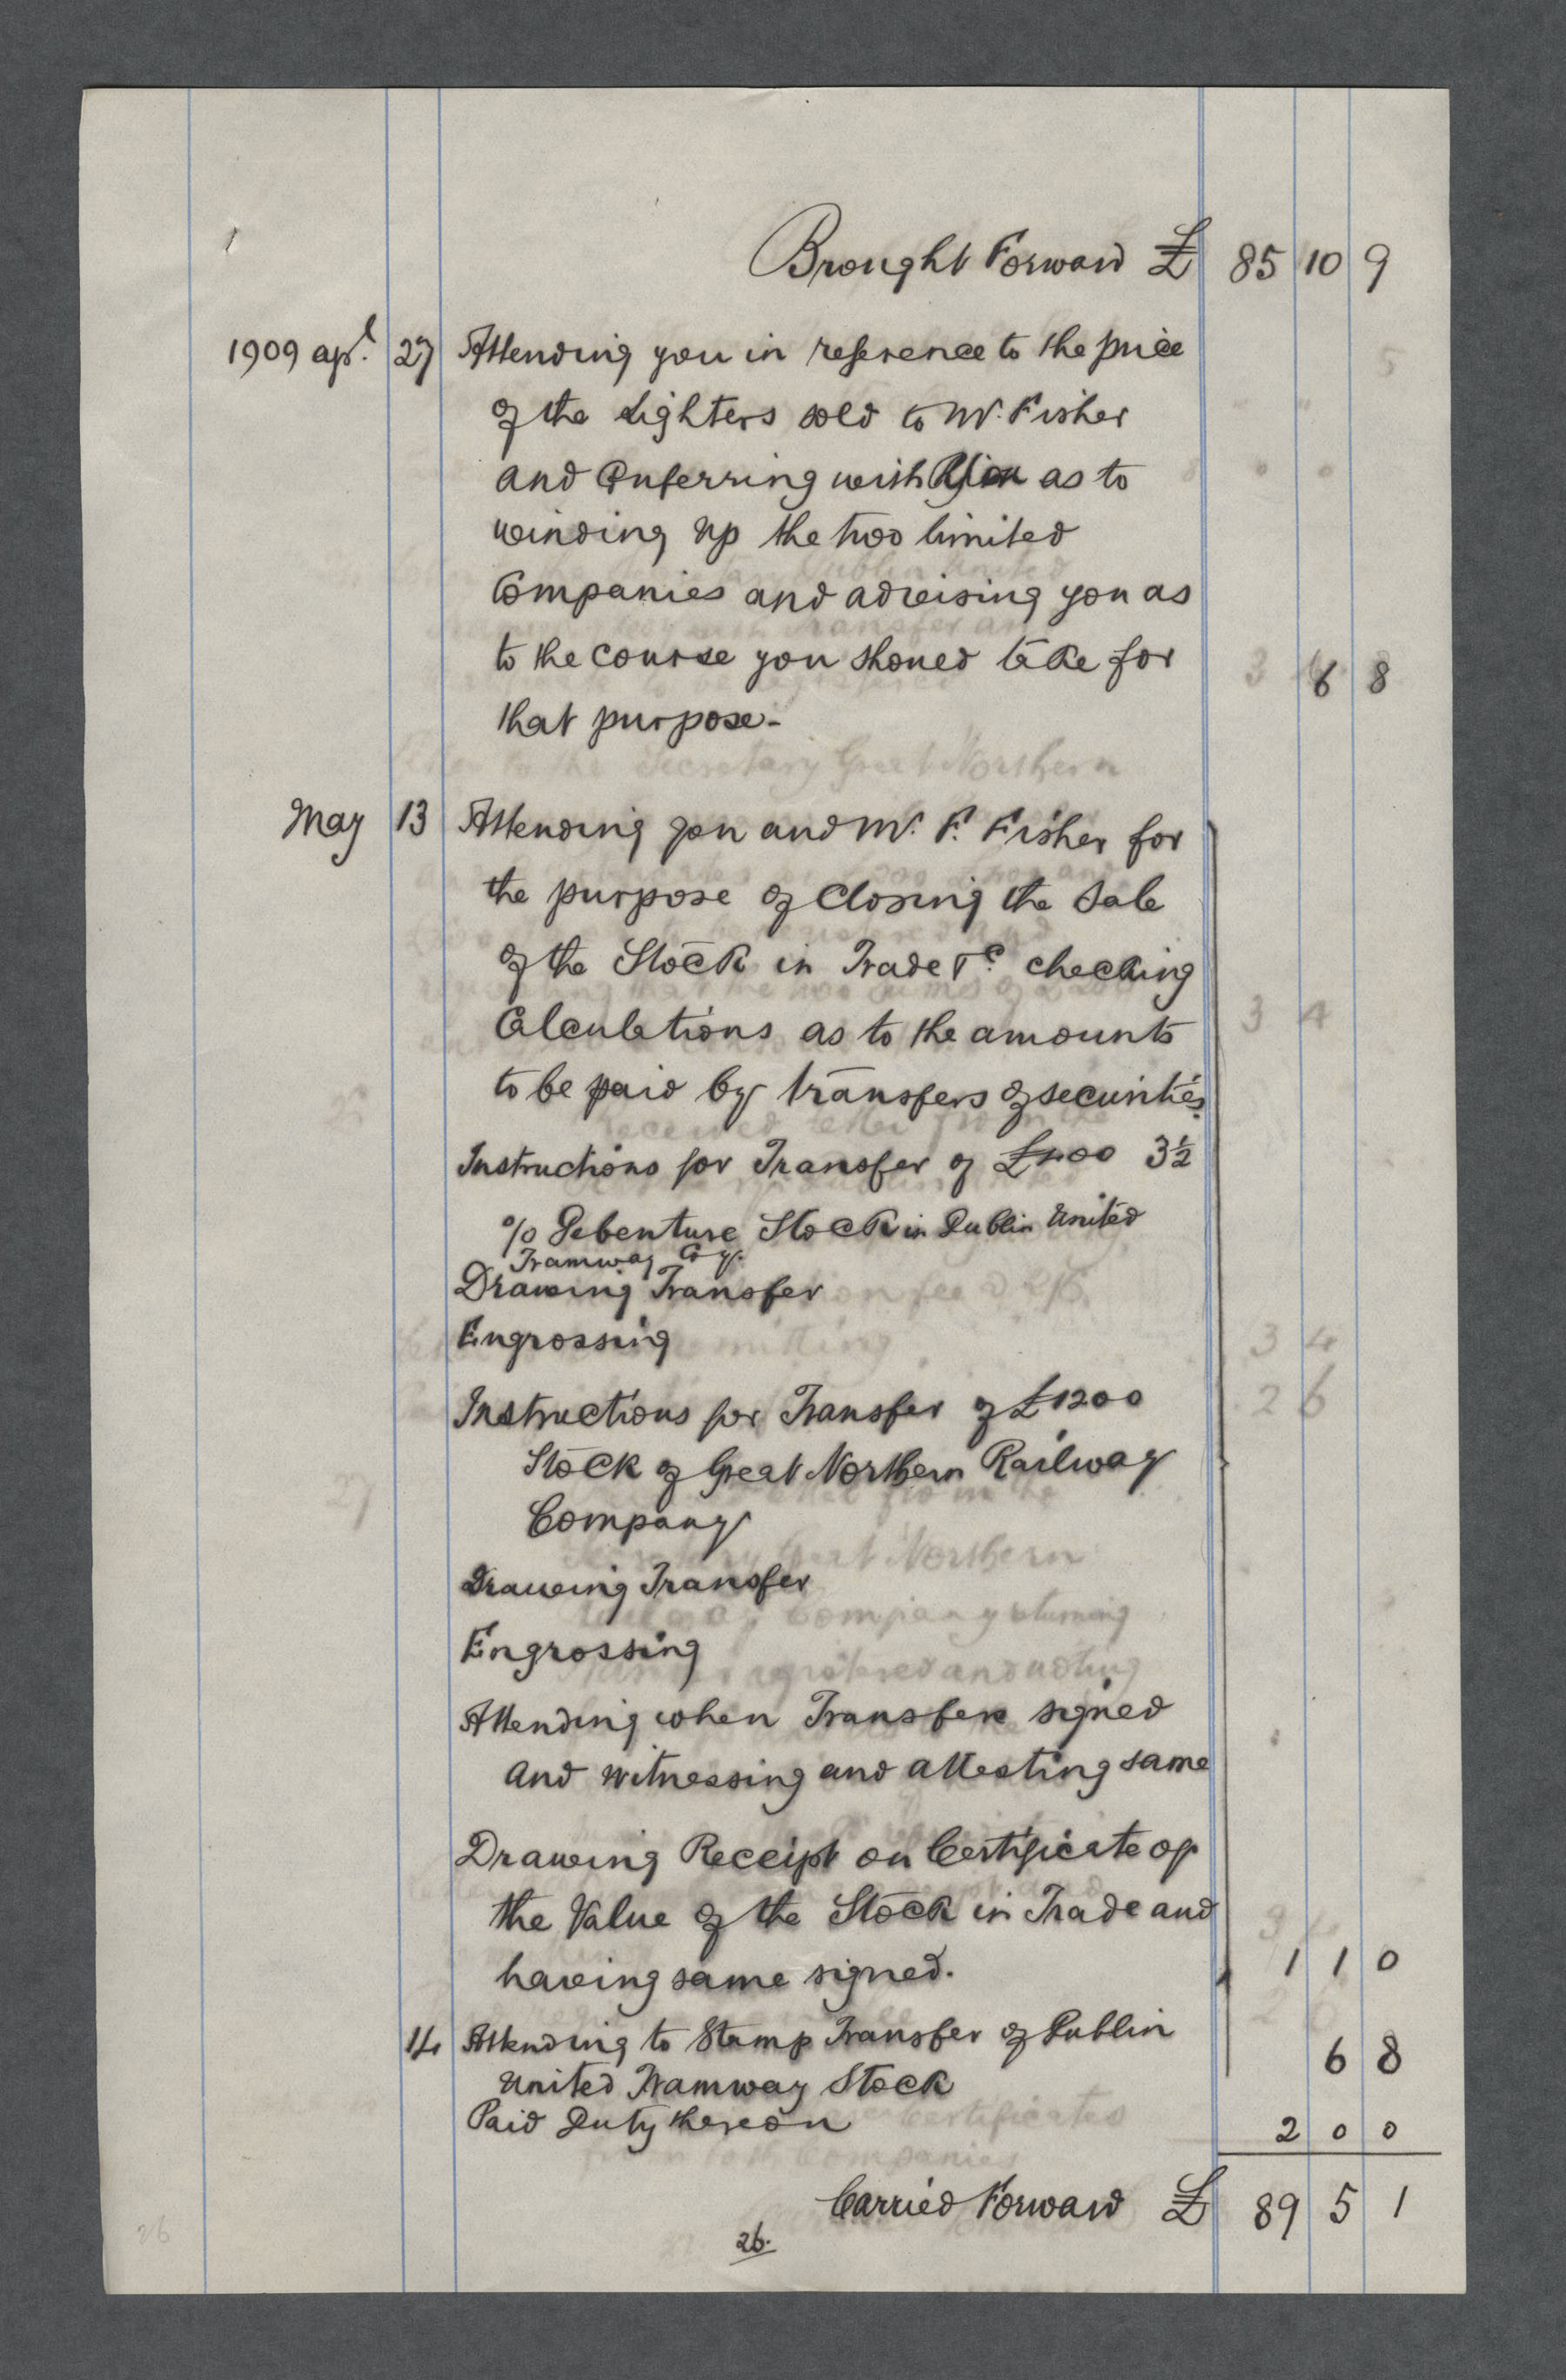 Brought Forward £ 85 10 9
1909 Apl. 27 Attending you in reference to the price
of the Lighters sold to Mr. Fisher
and Conferring with you as to
winding up the two limited
Companies and advising you as
to the course you should take for 6 8
that purpose-
May 13 Attending you and Mr. F. Fisher for
the purpose of Closing the Sale
of the Stock in Trade &c. checking
Calculations as to the amounts
to be paid by transfers of securities.
Instructions for Transfer of £400 3½
% Debenture Stock in Dublin United
Tramway Coy.
Drawing Transfer
Engrossing
Instructions for Transfer of £1200
Stock of Great Northern Railway
Company
Drawing Transfer
Engrossing
Attending when Transfers signed
and witnessing and attesting same
Drawing Receipt on Certificate of
the Value of the Stock in Trade and
having same signed. 1 1 0
14 Attending to Stamp Transfer of Dublin 6 8
United Tramway Stock
Paid Duty thereon 2 0 0
Carried Forward £ 89 5 1
26.
26